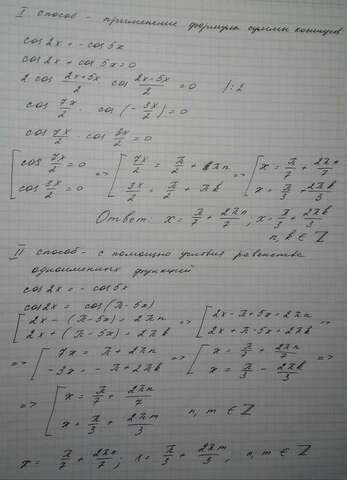 I способ - применение формулы суммы косинусов
cos 2x = - cos 5x
cos 2x + cos 5x = 0
2 cos (2x+5x)/2 · cos (2x-5x)/2 = 0 /:2
cos 7x/2 · cos (-3x/2) = 0
cos 7x/2 · cos 3x/2 = 0
[ cos 7x/2 = 0 => [ 7x/2 = π/2 + πn => [ x = π/7 + 2πn/7
cos 3x/2 = 0 3x/2 = π/2 + πk x = π/3 + 2πk/3
Ответ: x = π/7 + 2πn/7 ; x = π/3 + 2πk/3
n, k ∈ Z
II способ - с помощью условия равенства
одноименных функций
cos 2x = - cos 5x
cos 2x = cos (π-5x)
[ 2x - (π-5x) = 2πn => [ 2x - π + 5x = 2πn =>
2x + (π-5x) = 2πk 2x + π - 5x = 2πk
=> [ 7x = π + 2πn => [ x = π/7 + 2πn/7 =>
-3x = -π + 2πk x = π/3 - 2πk/3
=> [ x = π/7 + 2πn/7
x = π/3 + 2πm/3 n, m ∈ Z
x = π/7 + 2πn/7 ; x = π/3 + 2πm/3 , n, m ∈ Z